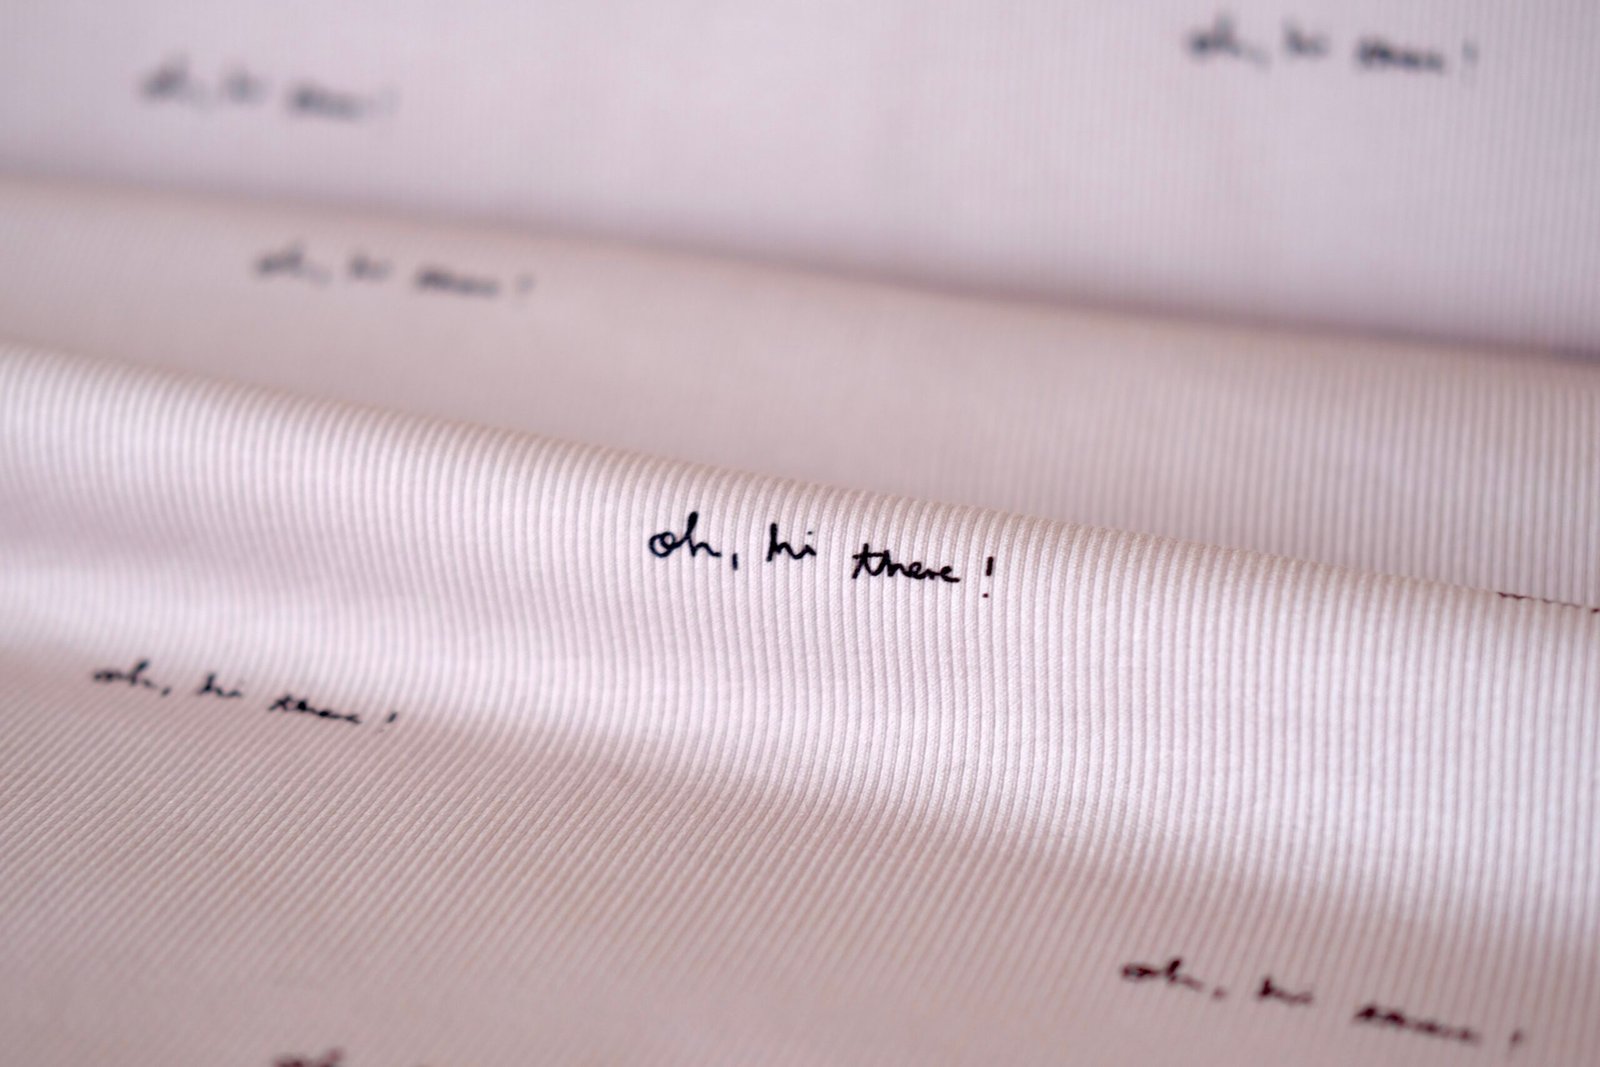 oh, hi there!
oh, hi there!
oh, hi there!
oh, hi there!
oh, hi there!
oh, hi there!
oh